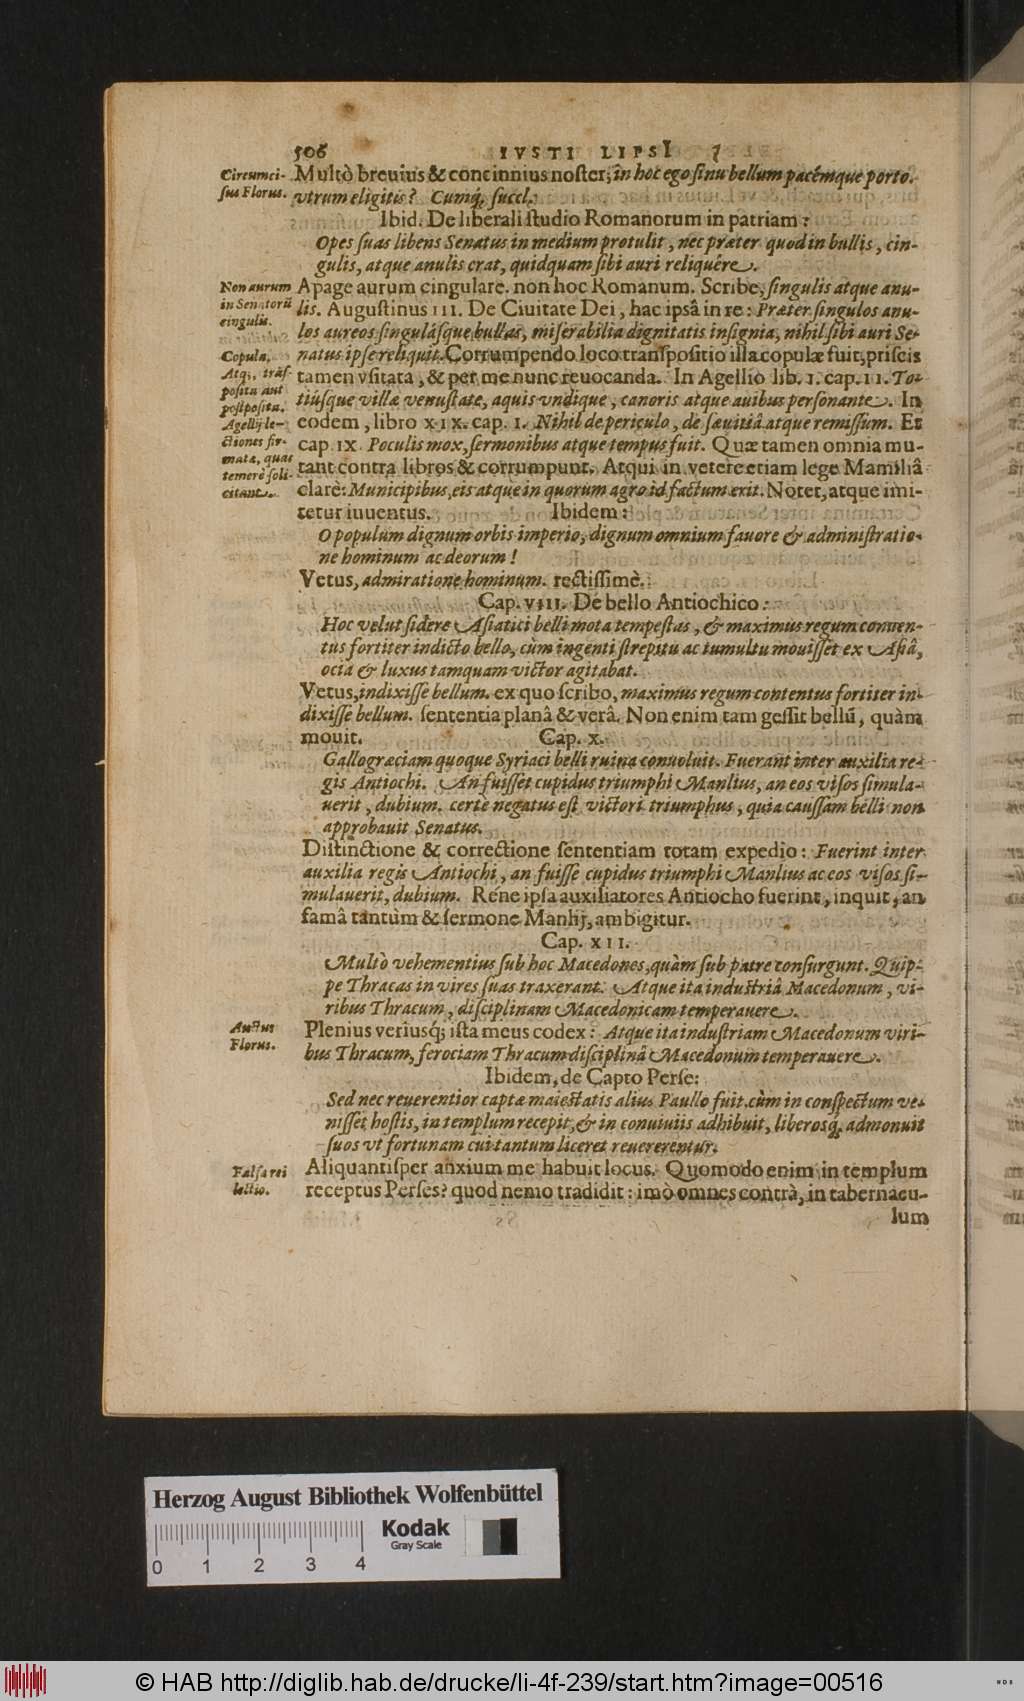 506 IVSTI LIPSI
Circumci-
sus Florus.
Multò breuius & concinnius noster, in hoc ego sinu bellum pacémque porto.
vtrum eligitis? Cumq́; succl.
Ibid. De liberali studio Romanorum in patriam:
Opes suas libens Senatus in medium protulit, nec præter quod in bullis, cin-
gulis, atque anulis erat, quidquam sibi auri reliquêre.
Non aurum
in Senatorū
cingulis.
Apage aurum cingulare. non hoc Romanum. Scribe, singulis atque anu-
lis. Augustinus III. De Ciuitate Dei, hac ipsâ in re: Præter singulos anu-
los aureos singulásque bullas, miserabilia dignitatis insignia, nihil sibi auri Se-
Copula,
Atq;, trās-
posita aut
postposita.
Agellij le-
ctiones fir-
matæ, quas
temerè soli-
citant.
natus ipse reliquit. Corrumpendo loco transpositio illa copulæ fuit, priscis
tamen vsitata, & per me nunc reuocanda. In Agellio lib. I. cap. II. To-
tiúsque villæ venustate, aquis vndique, canoris atque auibus personante. In
eodem, libro XIX. cap. I. Nihil de periculo, de sæuitiâ atque remissum. Et
cap. IX. Poculis mox, sermonibus atque tempus fuit. Quæ tamen omnia mu-
tant contra libros & corrumpunt. Atqui in vetere etiam lege Mamiliâ
clarè: Municipibus, eis atque in quorum agro id factum erit. Notet, atque imi-
tetur iuuentus. Ibidem:
O populum dignum orbis imperio, dignum omnium fauore & administratio-
ne hominum ac deorum!
Vetus, admiratione hominum. rectissimè.
Cap. VIII. De bello Antiochico:
Hoc velut sidere Asiatici belli mota tempestas, & maximus regum conten-
tus fortiter indicto bello, cùm ingenti strepitu ac tumultu mouisset ex Asiâ,
ocia & luxus tamquam victor agitabat.
Vetus, indixisse bellum. ex quo scribo, maximus regum contentus fortiter in-
dixisse bellum. sententia planâ & verâ. Non enim tam gessit bellū, quàm
mouit. Cap. X.
Gallogræciam quoque Syriaci belli ruina conuoluit. Fuerant inter auxilia re-
gis Antiochi. An fuisset cupidus triumphi Manlius, an eos visos simula-
uerit, dubium. certè negatus est victori triumphus, quia caussam belli non
approbauit Senatus.
Distinctione & correctione sententiam totam expedio: Fuerint inter
auxilia regis Antiochi, an fuisse cupidus triumphi Manlius ac eos visos si-
mulauerit, dubium. Rene ipsa auxiliatores Antiocho fuerint, inquit, an
famâ tantùm & sermone Manlij, ambigitur.
Cap. XII.
Multò vehementius sub hoc Macedones, quàm sub patre consurgunt. Quip-
pe Thracas in vires suas traxerant. Atque ita industriâ Macedonum, vi-
ribus Thracum, disciplinam Macedonicam temperauere.
Auctus
Florus.
Plenius veriusq́; ista meus codex: Atque ita industriam Macedonum viri-
bus Thracum, ferociam Thracum disciplinâ Macedonum temperauere.
Ibidem, de Capto Perse:
Sed nec reuerentior captæ maiestatis alius Paullo fuit. cùm in conspectum ve-
nisset hostis, in templum recepit, & in conuiuiis adhibuit, liberosq́; admonuit
suos vt fortunam cui tantum liceret reuererentur.
Falsa rei
lectio.
Aliquantisper anxium me habuit locus. Quomodo enim in templum
receptus Perses? quod nemo tradidit: imò omnes contrà, in tabernacu-
lum
Herzog August Bibliothek Wolfenbüttel
Kodak
Gray Scale
0 1 2 3 4
© HAB http://diglib.hab.de/drucke/li-4f-239/start.htm?image=00516